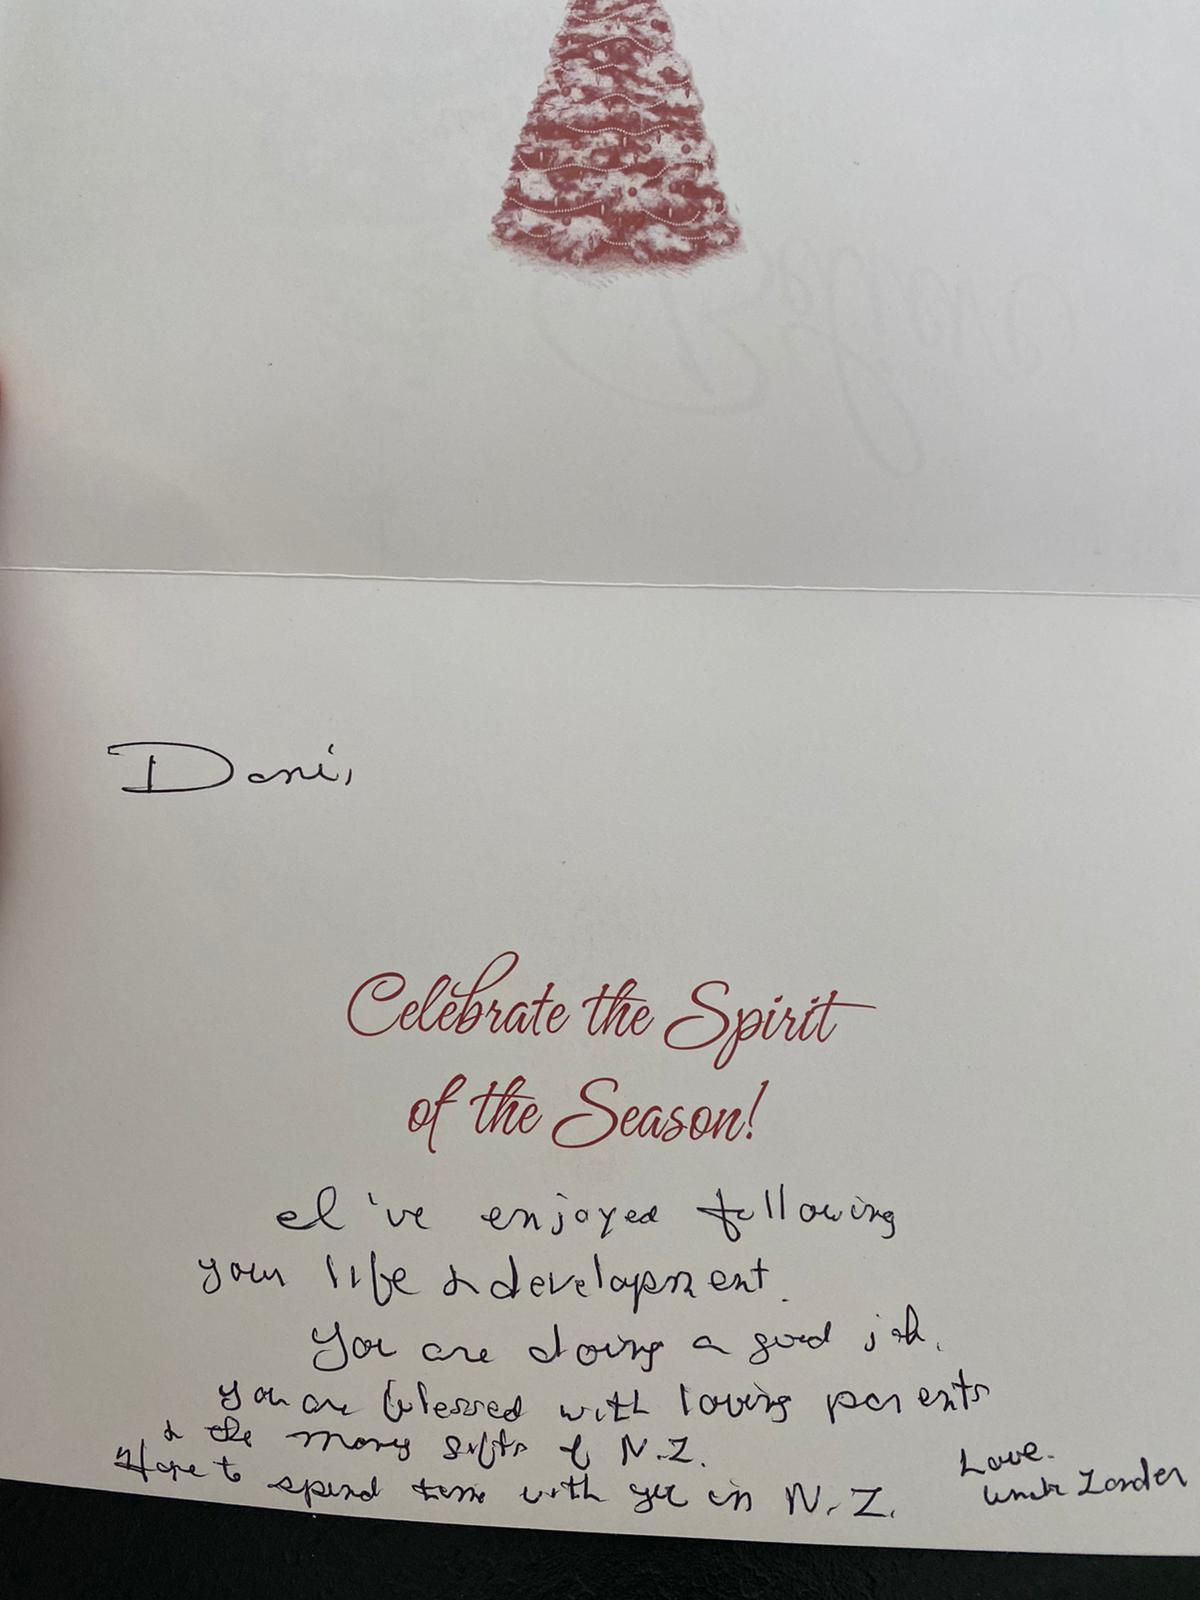 Dani,
Celebrate the Spirit
of the Season!
I've enjoyed following
your life & development.
You are doing a good job.
you are blessed with loving parents
& the many gifts of N.Z.
Hope to spend time with you in N.Z.
Love.
Uncle Zander